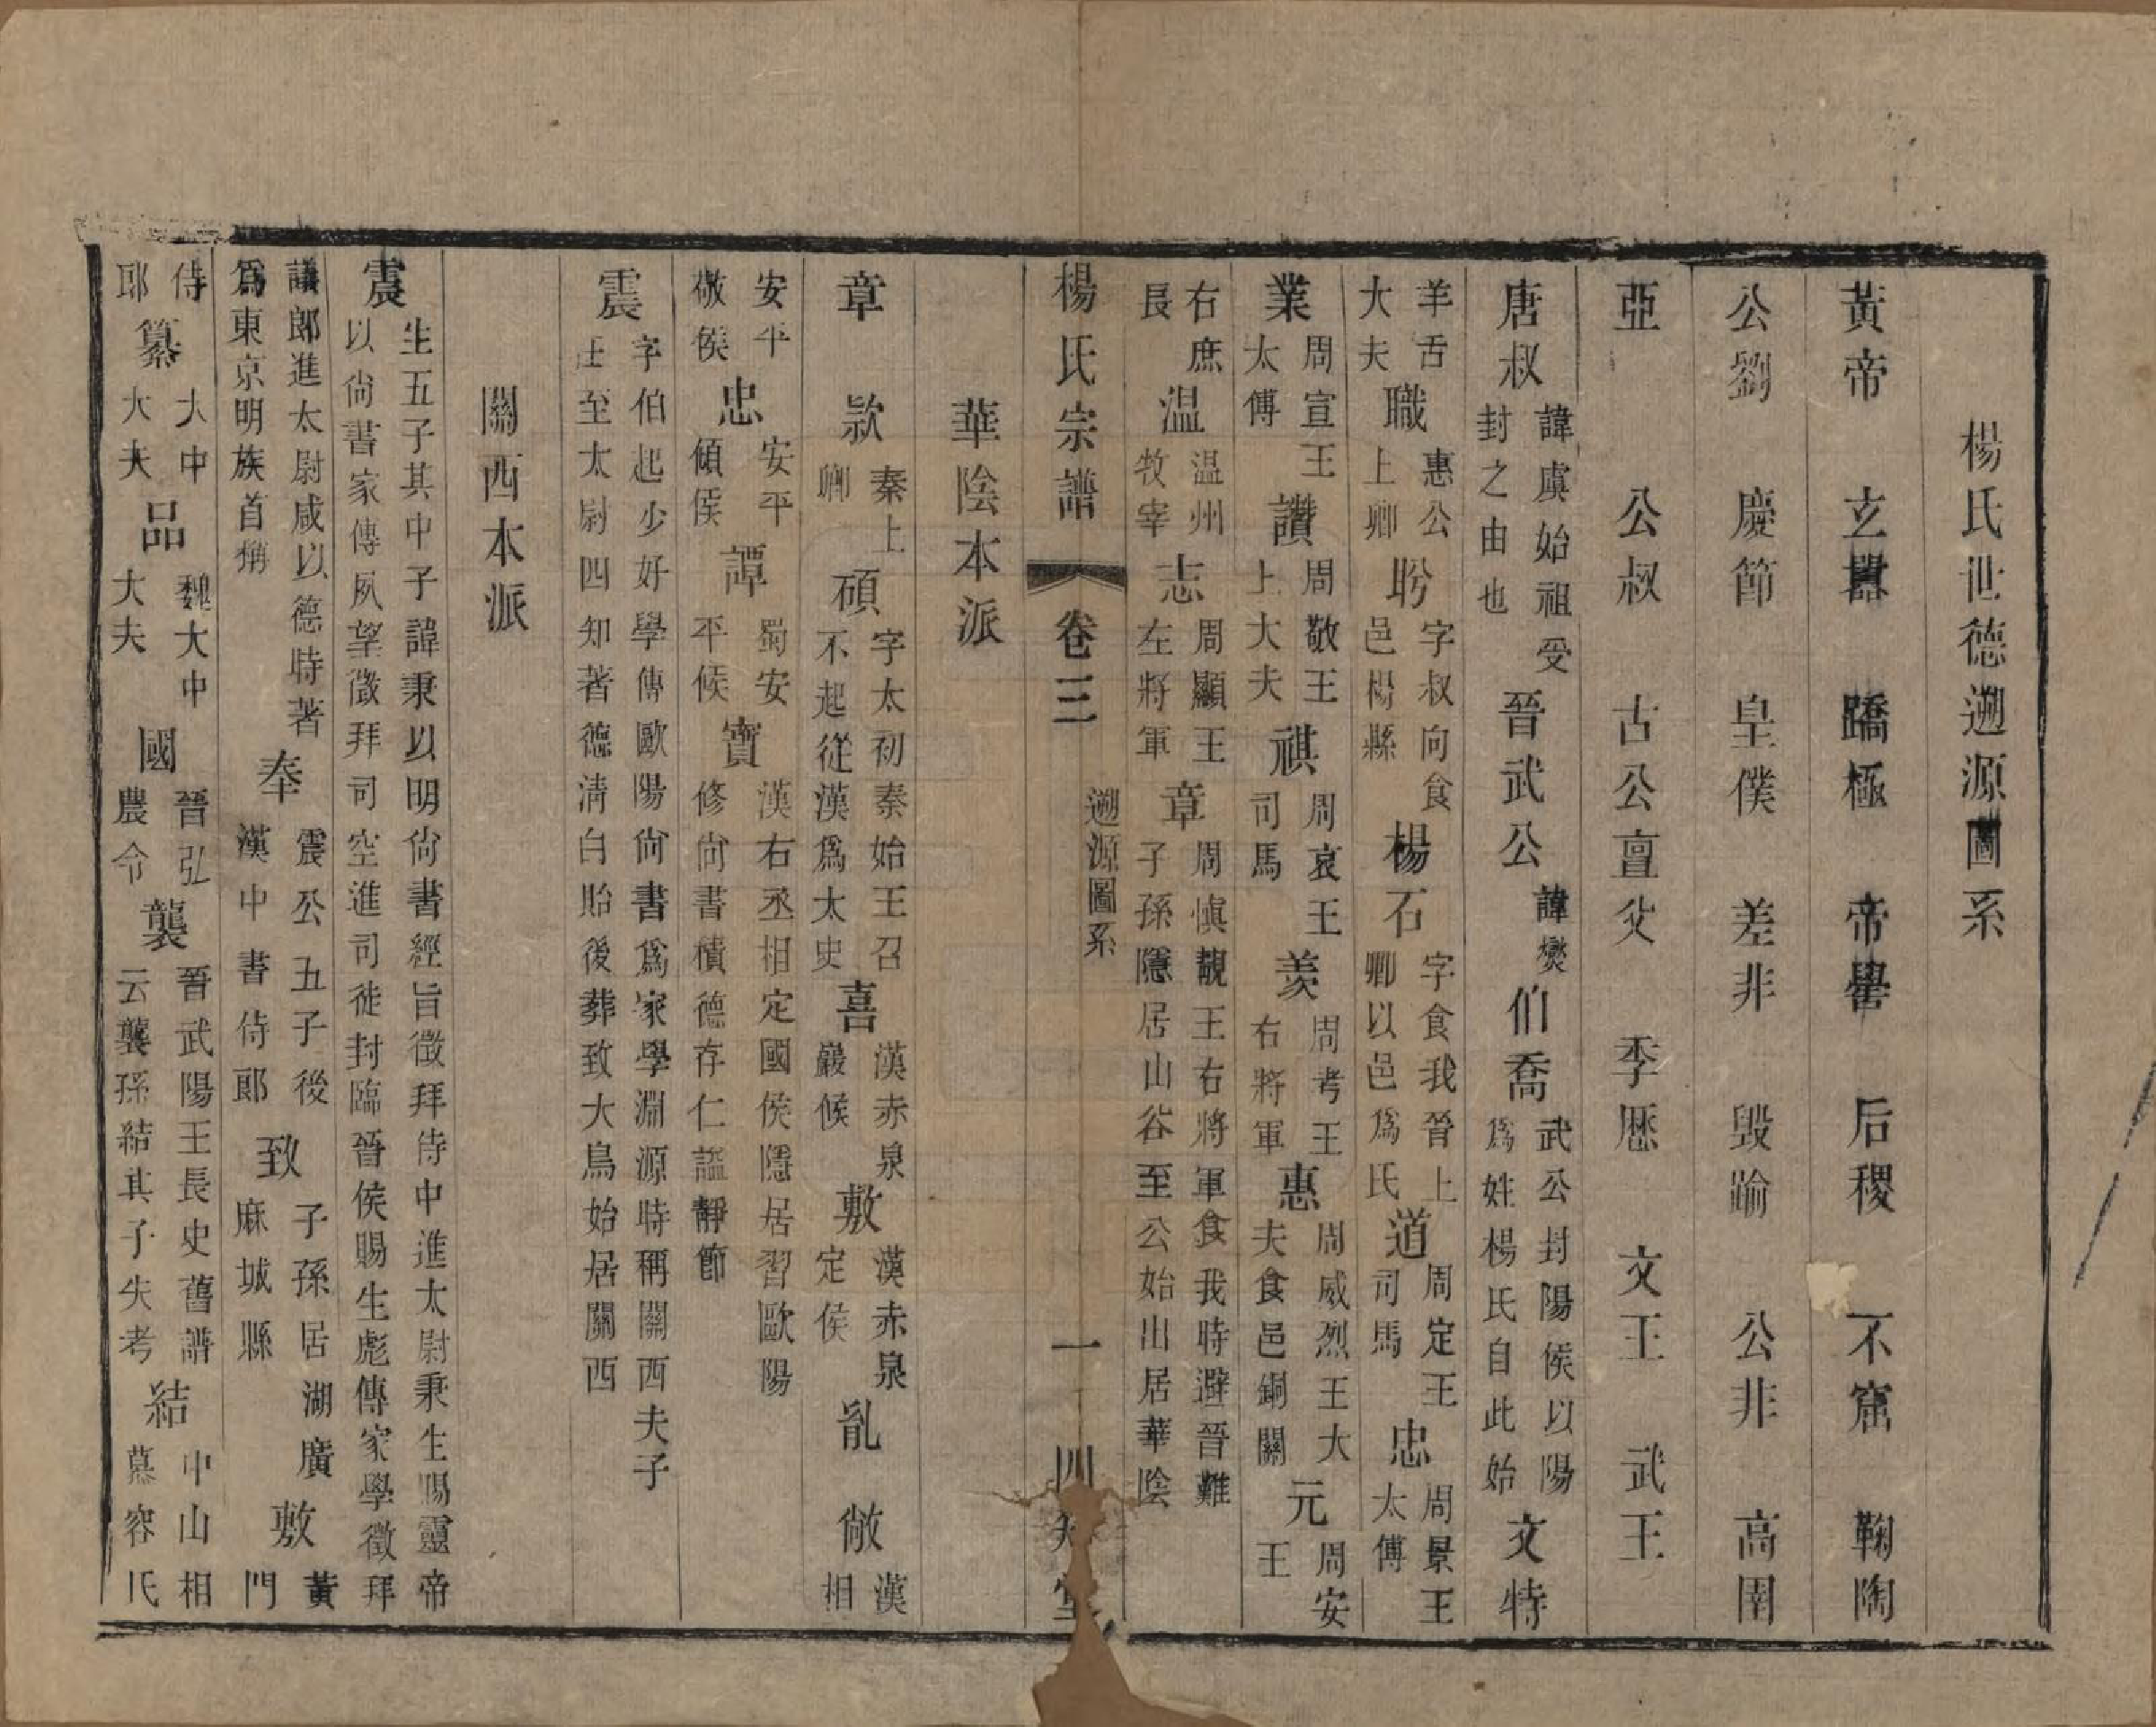 楊氏世德遡源圖系
黃帝 玄囂 蹻極 帝嚳 后稷 不窋 鞠陶
公劉 慶節 皇僕 差非 毀踰 公非 高圉
亞 公叔 古公亶父 季歷 文王 武王
唐叔 諱虞始祖受封之由也 晉武公 諱爕 伯喬 武公封陽侯以陽爲姓楊氏自此始 文特
羊舌大夫 職 惠公上卿 肸 字叔向食邑楊縣 楊石 字食我晉上卿以邑爲氏 道 周定王司馬 忠 周景王太傅
業 周宣王太傅 讚 周敬王上大夫 祺 周哀王司馬 羨 周考王右將軍 惠 周威烈王大夫食邑銅關 元 周安王
右庶長 温 温州牧宰 志 周顯王左將軍 章 周慎靚王右將軍食我時避晉難子孫隱居山谷至公始出居華陰
楊氏宗譜 卷三 遡源圖系 一 四知堂
華陰本派
章 款 秦上卿 碩 字太初秦始王召不起從漢爲太史 喜 漢赤泉嚴候 敷 漢赤泉定侯 胤 敞 漢相
安平敬侯 忠 安平傾侯 譚 蜀安平候 寶 漢右丞相定國侯隱居習歐陽修尙書積德存仁謚靜節
震 字伯起少好學傳歐陽尙書爲家學淵源時稱關西夫子仕至太尉四知著德淸白貽後葬致大鳥始居關西
關西本派
震 生五子其中子諱秉以明尙書經旨徵拜侍中進太尉秉生賜靈帝以尙書家傳夙望徵拜司空進司徒封臨晉侯賜生彪傳家學徵拜
議郎進太尉咸以德時著爲東京明族首稱 奉 震公五子後漢中書侍郎 致 子孫居湖廣麻城縣 敷 黃門
侍郎 纂 大中大夫 品 魏大中大夫 國 晉弘農令 襲 晉武陽王長史舊譜云襲孫結其子失考 結 中山相慕容氏